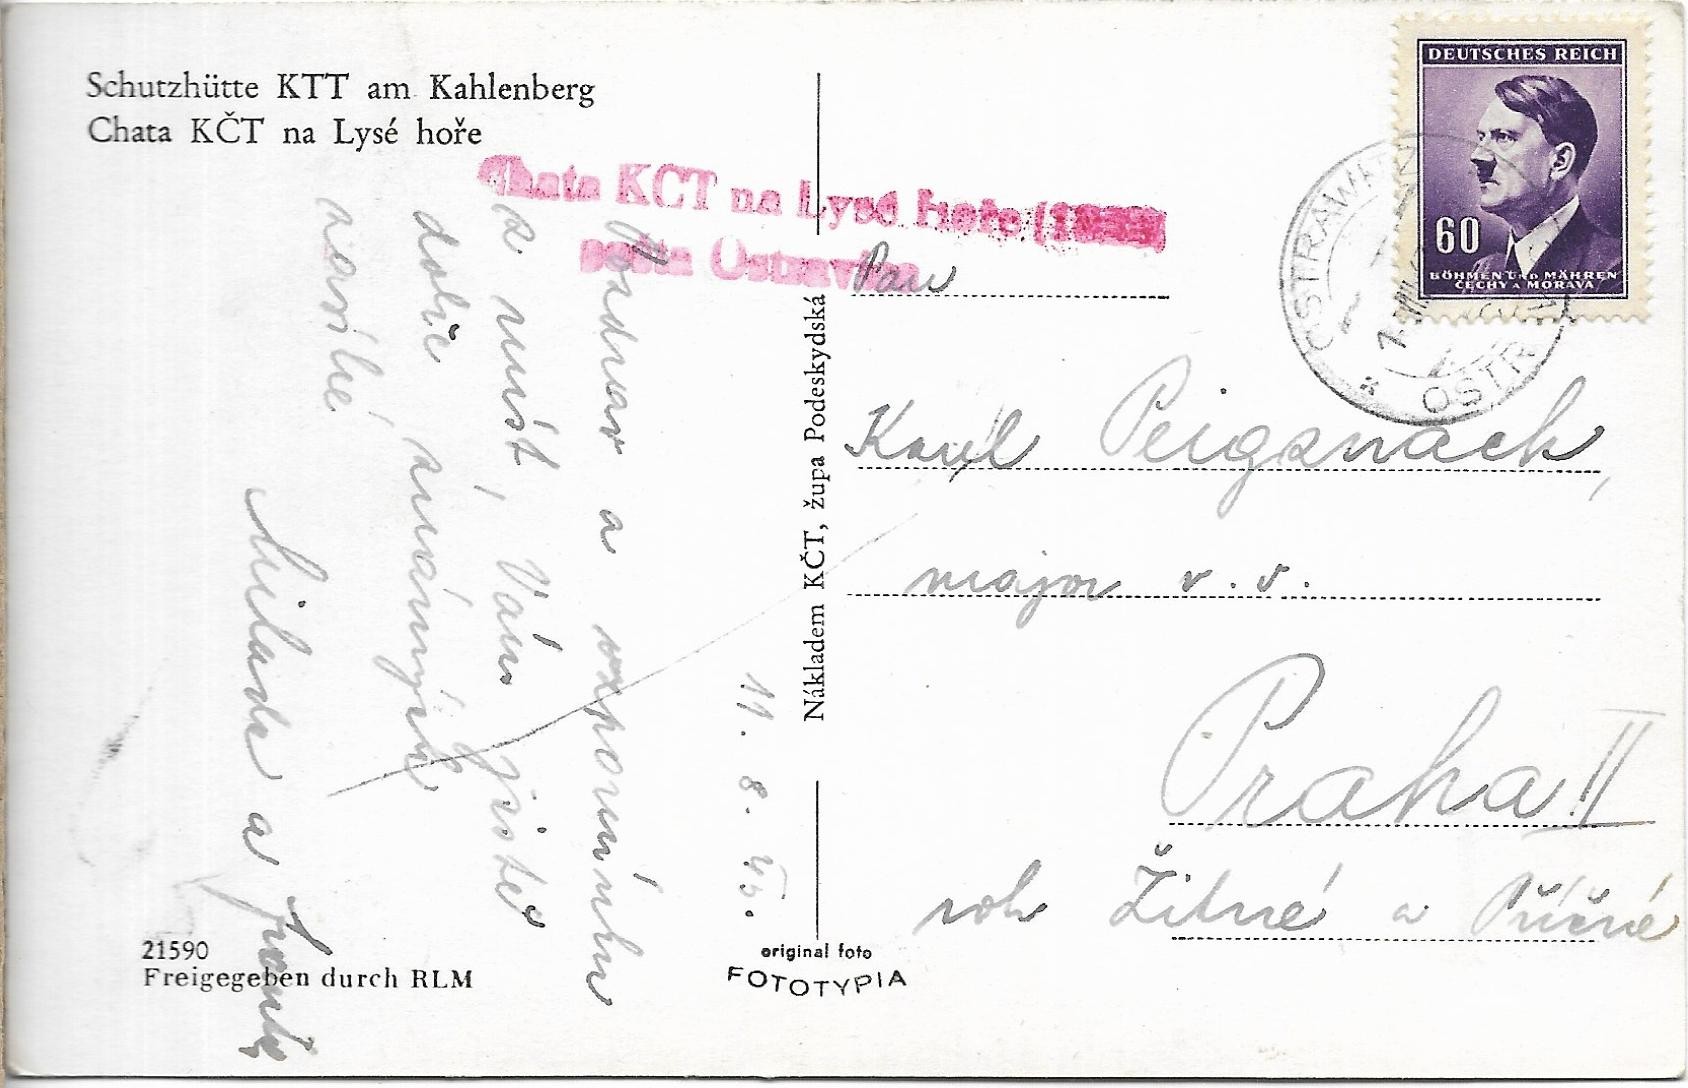 Schutzhütte KTT am Kahlenberg
Chata KČT na Lysé hoře
Chata KČT na Lysé hoře
pošta Ostravice
DEUTSCHES REICH
60
BÖHMEN UND MÄHREN
ČECHY A MORAVA
OSTRAWITZ
OSTR
11. 8. 43.
Pozdrav a vzpomínku
z míst, Vám jistě
dobře známých
zasílá
Milada a
Nákladem KČT, župa Podeskydská
Pan
Karel
major v. v.
Praha II
roh Žitné a Příčné
21590
Freigegeben durch RLM
original foto
FOTOTYPIA